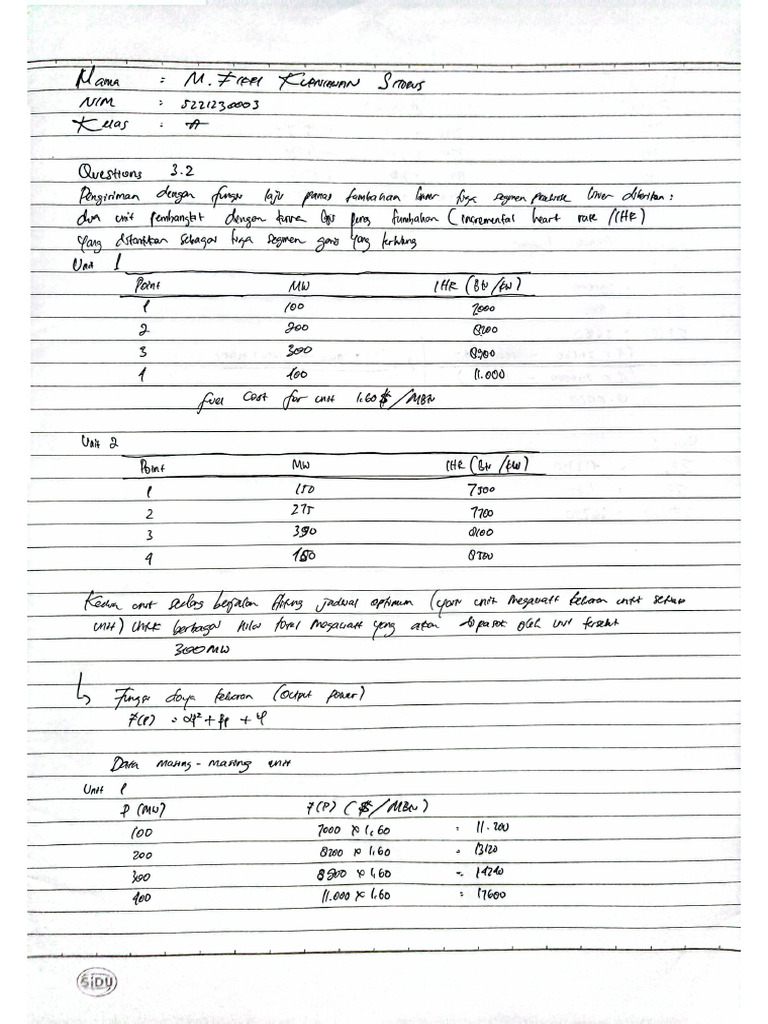 Nama : M. Fikri Kurniawan Sitorus
NIM : 5221230003
Kelas : A
Questions 3.2
Pengiriman dengan fungsi laju panas tambahan linier tiga segmen diberikan :
dua unit pembangkit dengan kurva laju panas tambahan (incremental heart rate / IHR)
yang disebutkan sebagai tiga segmen garis yang terhubung
Unit 1
Point MW IHR (Btu/kW)
1 100 7000
2 200 8200
3 300 8900
4 400 11.000
fuel cost for unit 1.60 $/MBtu
Unit 2
Point MW IHR (Btu/kW)
1 150 7500
2 275 7700
3 390 8100
4 450 8500
Kedua unit sedang berjalan Hitung jadwal optimum (yaitu unit megawatt keluaran untuk setiap
unit) untuk berbagai nilai total megawatt yang akan dipasok oleh unit tersebut
300 MW
↳ Fungsi daya keluaran (Output power)
F(P) = αP² + βP + φ
Data masing - masing unit
Unit 1
P (MW) F(P) ($/MBtu)
100 7000 x 1,60 = 11.200
200 8200 x 1,60 = 13120
300 8900 x 1,60 = 14240
400 11.000 x 1,60 = 17600
SiDU